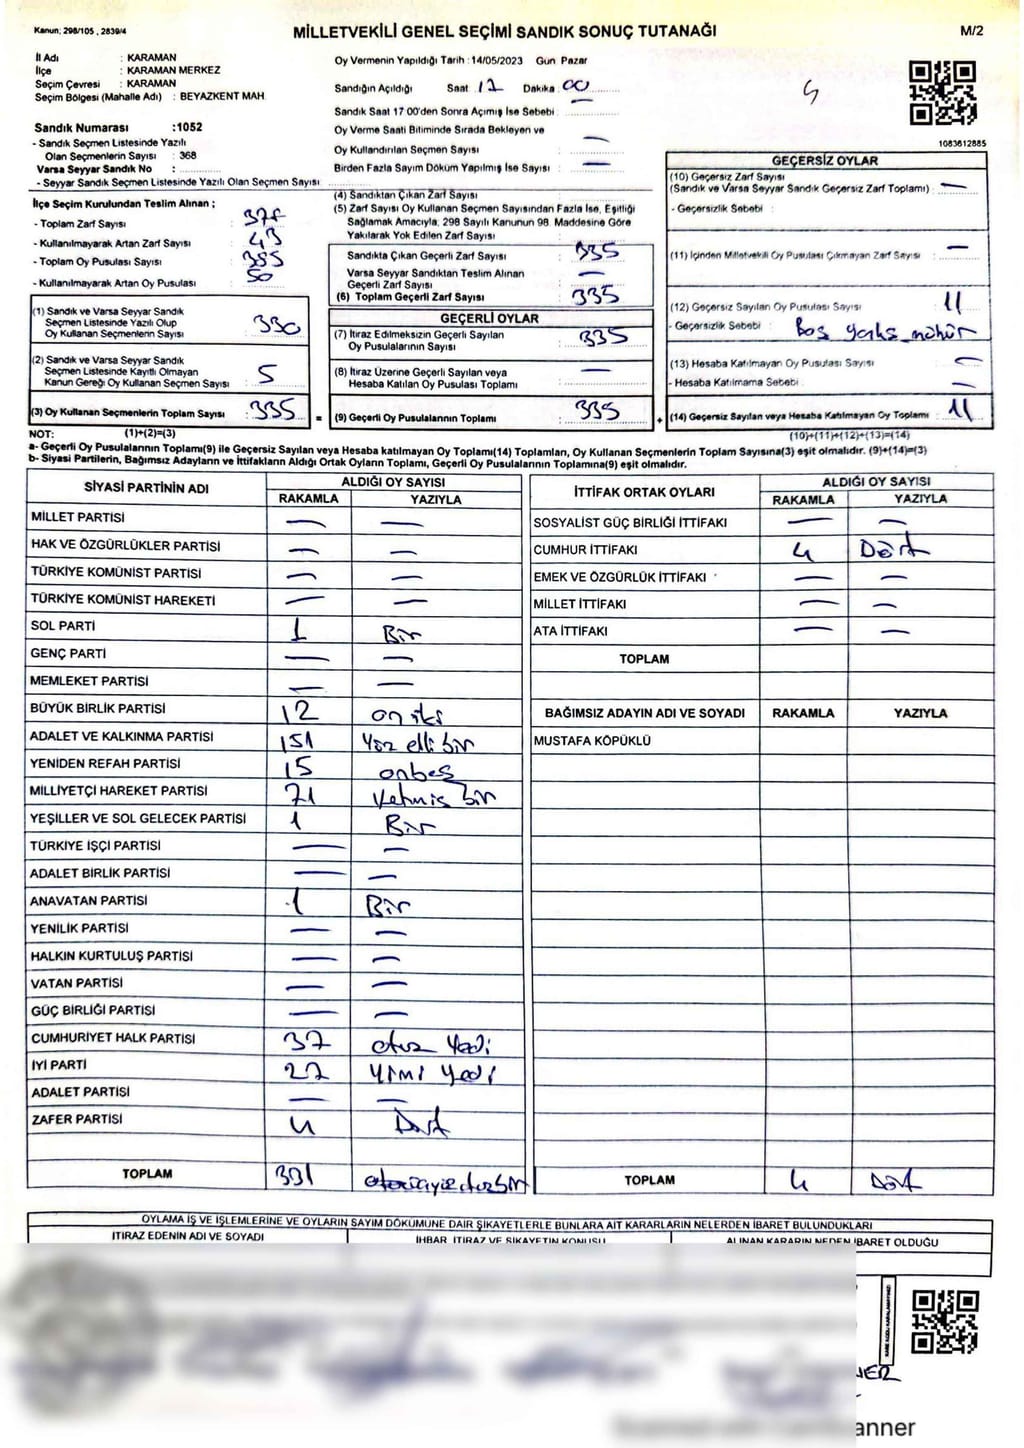 Kanun; 298/105 , 2839/4
MİLLETVEKİLİ GENEL SEÇİMİ SANDIK SONUÇ TUTANAĞI
M/2
İl Adı : KARAMAN
İlçe : KARAMAN MERKEZ
Seçim Çevresi : KARAMAN
Seçim Bölgesi (Mahalle Adı) : BEYAZKENT MAH.
Sandık Numarası :1052
- Sandık Seçmen Listesinde Yazılı
Olan Seçmenlerin Sayısı : 368
Varsa Seyyar Sandık No :
- Seyyar Sandık Seçmen Listesinde Yazılı Olan Seçmen Sayısı
İlçe Seçim Kurulundan Teslim Alınan ;
- Toplam Zarf Sayısı :
- Kullanılmayarak Artan Zarf Sayısı : 43
- Toplam Oy Pusulası Sayısı : 385
- Kullanılmayarak Artan Oy Pusulası : 50
(1) Sandık ve Varsa Seyyar Sandık
Seçmen Listesinde Yazılı Olup
Oy Kullanan Seçmenlerin Sayısı : 330
(2) Sandık ve Varsa Seyyar Sandık
Seçmen Listesinde Kayıtlı Olmayan
Kanun Gereği Oy Kullanan Seçmen Sayısı : 5
(3) Oy Kullanan Seçmenlerin Toplam Sayısı : 335
(1)+(2)=(3)
Oy Vermenin Yapıldığı Tarih : 14/05/2023 Gun Pazar
Sandığın Açıldığı Saat 17 Dakika 00
Sandık Saat 17 00'den Sonra Açımış İse Sebebi : —
Oy Verme Saati Bitiminde Sırada Bekleyen ve
Oy Kullandırılan Seçmen Sayısı : —
Birden Fazla Sayım Döküm Yapılmış İse Sayısı : —
(4) Sandıktan Çıkan Zarf Sayısı
(5) Zarf Sayısı Oy Kullanan Seçmen Sayısından Fazla İse, Eşitliği
Sağlamak Amacıyla, 298 Sayılı Kanunun 98. Maddesine Göre
Yakılarak Yok Edilen Zarf Sayısı :
Sandıkta Çıkan Geçerli Zarf Sayısı : 335
Varsa Seyyar Sandıktan Teslim Alınan
Geçerli Zarf Sayısı : —
(6) Toplam Geçerli Zarf Sayısı : 335
GEÇERLİ OYLAR
(7) İtiraz Edilmeksizin Geçerli Sayılan
Oy Pusulalarının Sayısı : 335
(8) İtiraz Üzerine Geçerli Sayılan veya
Hesaba Katılan Oy Pusulası Toplamı : —
= (9) Geçerli Oy Pusulalarının Toplamı : 335
1083612885
GEÇERSİZ OYLAR
(10) Geçersiz Zarf Sayısı
(Sandık ve Varsa Seyyar Sandık Geçersiz Zarf Toplamı) : —
- Geçersizlik Sebebi :
(11) İçinden Milletvekili Oy Pusulası Çıkmayan Zarf Sayısı : —
(12) Geçersiz Sayılan Oy Pusulası Sayısı : 11
- Geçersizlik Sebebi : Boş mühür
(13) Hesaba Katılmayan Oy Pusulası Sayısı : —
- Hesaba Katılmama Sebebi : —
+ (14) Geçersiz Sayılan veya Hesaba Katılmayan Oy Toplamı : 11
(10)+(11)+(12)+(13)=(14)
NOT:
a- Geçerli Oy Pusulalarının Toplamı(9) ile Geçersiz Sayılan veya Hesaba katılmayan Oy Toplamı(14) Toplamları, Oy Kullanan Seçmenlerin Toplam Sayısına(3) eşit olmalıdır. (9)+(14)=(3)
b- Siyasi Partilerin, Bağımsız Adayların ve İttifakların Aldığı Ortak Oyların Toplamı, Geçerli Oy Pusulalarının Toplamına(9) eşit olmalıdır.
SİYASİ PARTİNİN ADI ALDIĞI OY SAYISI
RAKAMLA YAZIYLA
MİLLET PARTİSİ — —
HAK VE ÖZGÜRLÜKLER PARTİSİ — —
TÜRKİYE KOMÜNİST PARTİSİ — —
TÜRKİYE KOMÜNİST HAREKETİ — —
SOL PARTİ 1 Bir
GENÇ PARTİ — —
MEMLEKET PARTİSİ — —
BÜYÜK BİRLİK PARTİSİ 12 on iki
ADALET VE KALKINMA PARTİSİ 151 Yüz elli bir
YENİDEN REFAH PARTİSİ 15 onbeş
MİLLİYETÇİ HAREKET PARTİSİ 71 Yetmiş bir
YEŞİLLER VE SOL GELECEK PARTİSİ 1 Bir
TÜRKİYE İŞÇİ PARTİSİ — —
ADALET BİRLİK PARTİSİ — —
ANAVATAN PARTİSİ 1 Bir
YENİLİK PARTİSİ — —
HALKIN KURTULUŞ PARTİSİ — —
VATAN PARTİSİ — —
GÜÇ BİRLİĞİ PARTİSİ — —
CUMHURİYET HALK PARTİSİ 37 otuz Yedi
İYİ PARTİ 27 Yimi yedi
ADALET PARTİSİ — —
ZAFER PARTİSİ 4 Dört
TOPLAM 331
İTTİFAK ORTAK OYLARI ALDIĞI OY SAYISI
RAKAMLA YAZIYLA
SOSYALİST GÜÇ BİRLİĞİ İTTİFAKI — —
CUMHUR İTTİFAKI 4 Dört
EMEK VE ÖZGÜRLÜK İTTİFAKI — —
MİLLET İTTİFAKI — —
ATA İTTİFAKI — —
TOPLAM
BAĞIMSIZ ADAYIN ADI VE SOYADI RAKAMLA YAZIYLA
MUSTAFA KÖPÜKLÜ
TOPLAM 4 Dört
OYLAMA İŞ VE İŞLEMLERİNE VE OYLARIN SAYIM DÖKÜMÜNE DAİR ŞİKAYETLERLE BUNLARA AİT KARARLARIN NELERDEN İBARET BULUNDUKLARI
İTİRAZ EDENİN ADI VE SOYADI
İHBAR, İTİRAZ VE ŞİKAYETİN KONUSU
ALINAN KARARIN NEDEN İBARET OLDUĞU